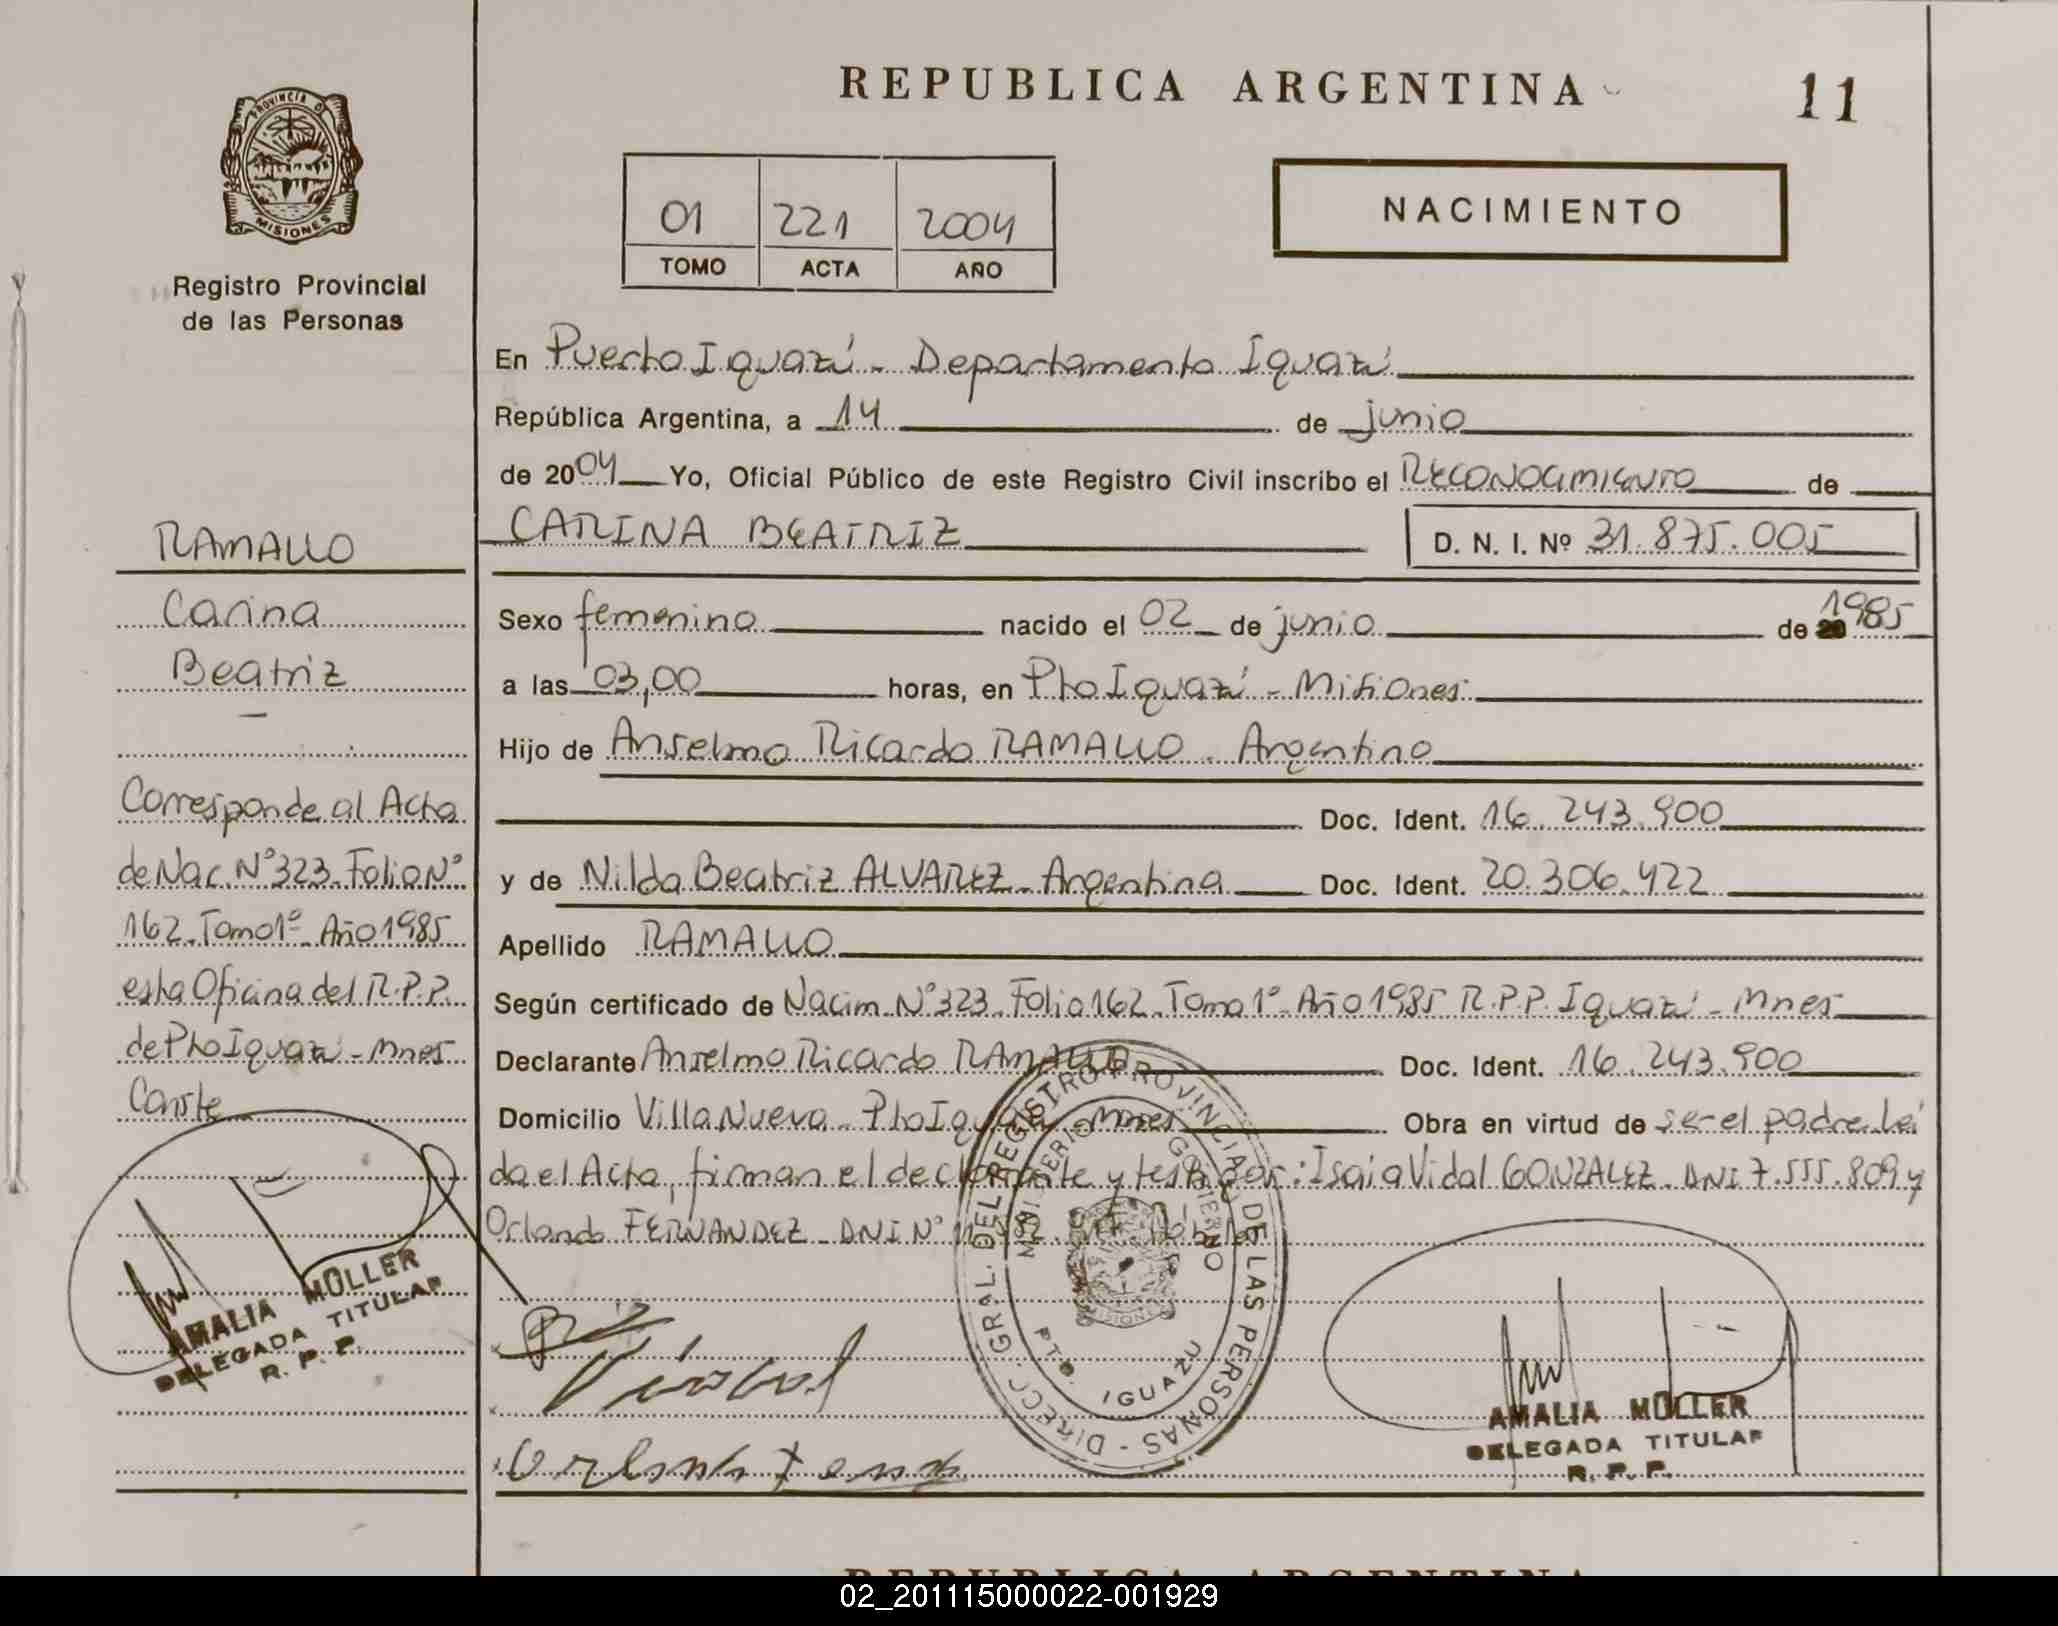 REPUBLICA ARGENTINA
11
PROVINCIA DE
MISIONES
Registro Provincial
de las Personas
01 221 2004
TOMO ACTA AÑO
NACIMIENTO
En Puerto Iguazú - Departamento Iguazú
República Argentina, a 14 de junio
de 2004 Yo, Oficial Público de este Registro Civil inscribo el RECONOCIMIENTO de
CARINA BEATRIZ D. N. I. Nº 31.875.005
Sexo femenino nacido el 02 de junio de 1985
a las 03,00 horas, en Pto Iguazú - Misiones
Hijo de Anselmo Ricardo RAMALLO - Argentino
Doc. Ident. 16.243.900
y de Nilda Beatriz ALVAREZ - Argentina Doc. Ident. 20.306.422
Apellido RAMALLO
Según certificado de Nacim. Nº 323. Folio 162. Tomo 1º Año 1985 R.P.P. Iguazú - Mnes
Declarante Anselmo Ricardo RAMALLO Doc. Ident. 16.243.900
Domicilio Villa Nueva - Pto Iguazú - Mnes Obra en virtud de ser el padre. Leí
da el Acta, firman el declarante y testigos: Isaia Vidal GONZALEZ. DNI 7.555.809 y
Orlando FERNANDEZ - DNI Nº
RAMALLO
Carina
Beatriz
Corresponde al Acta
de Nac. Nº 323. Folio Nº
162. Tomo 1º Año 1985
esta Oficina del R.P.P.
de Pto Iguazú - Mnes
Conste
AMALIA MÜLLER
DELEGADA TITULAR
R. P. P.
DIRECC. GRAL. DEL REGISTRO PROVINCIAL DE LAS PERSONAS -
MINISTERIO GOBIERNO
MISIONES
PTO. IGUAZU
AMALIA MÜLLER
DELEGADA TITULAR
R. P. P.
REPUBLICA ARGENTINA
02_201115000022-001929